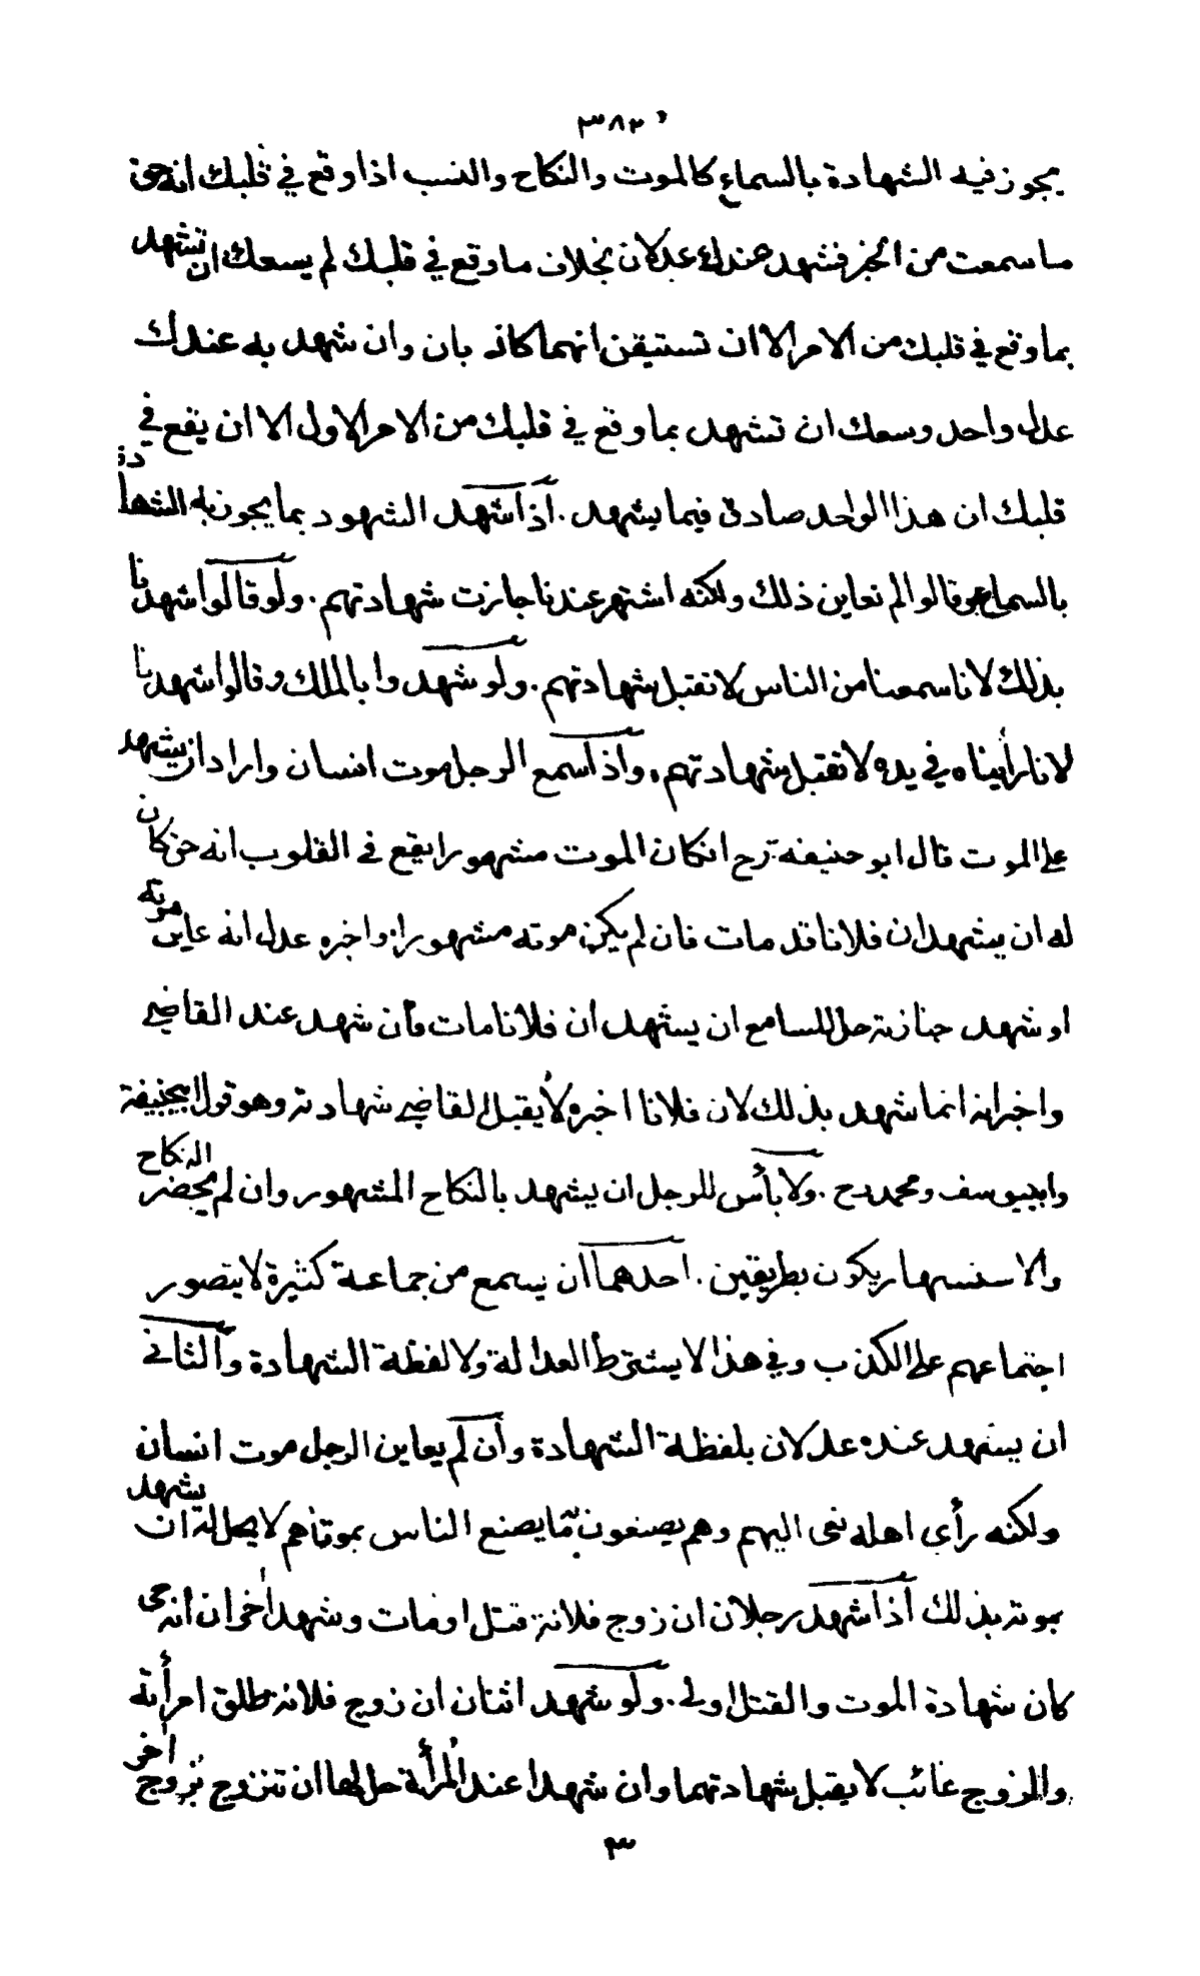 ٣٨٢
يجوز فيه الشهادة بالسماع كالموت والنكاح والنسب اذا وقع في قلبك انه حق
ما سمعت من الخبر فشهد عندك عدلان بخلاف ما وقع في قلبك لم يسعك ان تشهد
بما وقع في قلبك من الامر الا ان تستيقن انهما كاذبان وان شهد به عندك
عدل واحد وسعك ان تشهد بما وقع في قلبك من الامر الاول الا ان يقع في
قلبك ان هذا الواحد صادق فيما يشهد . اذا شهد الشهود بما يجوز به الشهادة
بالسماع وقالوا لم نعاين ذلك ولكنه اشتهر عندنا جازت شهادتهم . ولو قالوا شهدنا
بذلك لانا سمعنا من الناس لا تقبل شهادتهم . ولو شهدوا بالملك وقالوا شهدنا
لانا رأيناه في يده لا تقبل شهادتهم . واذا سمع الرجل موت انسان واراد ان يشهد
على الموت قال ابو حنيفة رح ان كان الموت مشهورا يقع في القلوب انه حق كان
له ان يشهد ان فلانا قد مات فان لم يكن موته مشهورا واخبره عدل انه عاين موته
او شهد جنازته حل للسامع ان يشهد ان فلانا مات فأن شهد عند القاضي
واخبر انه انما شهد بذلك لان فلانا اخبره لا يقبل القاضي شهادته وهو قول ابيحنيفة
وابييوسف ومحمد رح . ولا بأس للرجل ان يشهد بالنكاح المشهور وان لم يحضر النكاح
والاستشهار يكون بطريقين . احدهما ان يسمع من جماعة كثيرة لا يتصور
اجتماعهم على الكذب وفي هذا لا يشترط العدالة ولا لفظة الشهادة والثاني
ان يشهد عنده عدلان بلفظة الشهادة وان لم يعاين الرجل موت انسان
ولكنه رأى اهله نعى اليهم وهم يصنعون ما يصنع الناس بموتاهم لا يحل له ان يشهد
بموته بذلك اذا شهد رجلان ان زوج فلانة قتل او مات وشهد أخران انه حى
كان شهادة الموت والقتل اولى . ولو شهد اثنان ان زوج فلانة طلق امرأته
والزوج غائب لا يقبل شهادتهما وان شهدا عند المرأة حل لها ان تتزوج بزوج أخر
٣